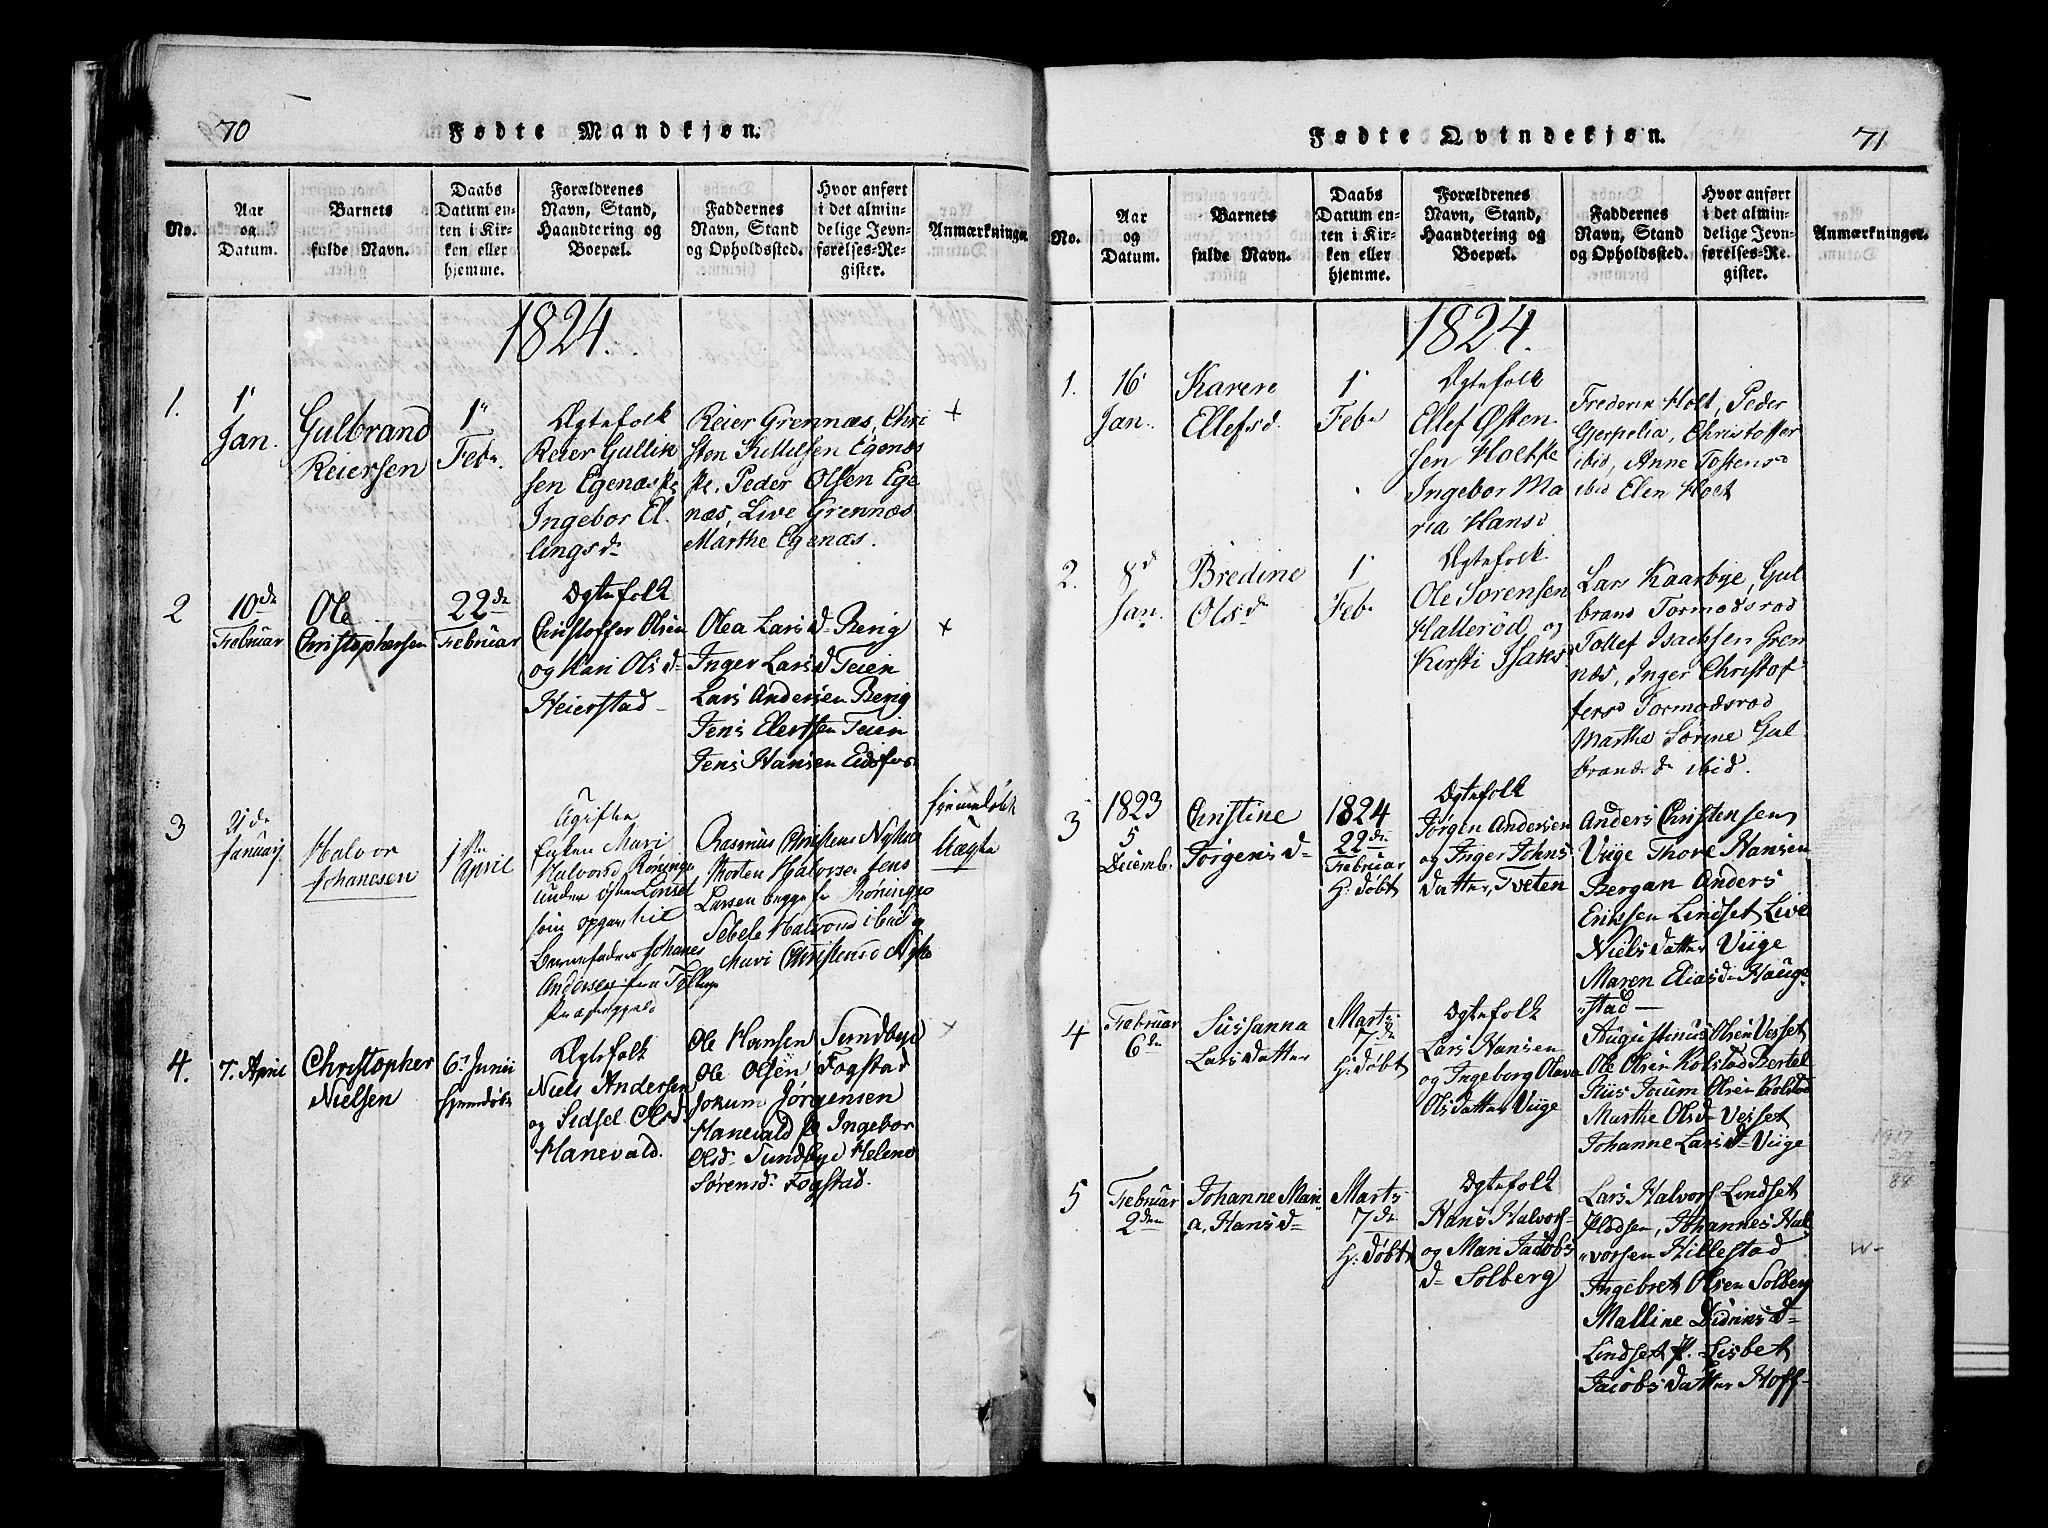 70
Fødte Mandkjøn.
No.
Aar
og
Datum.
Barnets
fulde Navn.
Daabs
Datum en-
ten i Kir-
ken eller
hjemme.
Forældrenes
Navn, Stand,
Haandtering og
Boepæl.
Faddernes
Navn, Stand
og Opholdssted.
Hvor anført
i det almin-
delige Jevn-
førelses-Re-
gister.
Anmærkninger.
1824.
1.
1'
Jan.
Gulbrand
Reiersen
1"
Feb.
Ægtefolk
Reier Gullik
sen Egenæs
Ingebor El-
lingsd
Reier Grennæs, Chri
sten Kittelsen Egenæs
Peder Olsen Ege
næs, Live Grennæs
Marthe Egenæs.
+
2
10de
Februar
Ole
Christophersen
22de
Februar
Ægtefolk
Christoffer Olsen
og Kari Olsd
Heierstad
Olea Larsd Berig
Inger Larsd Teien
Lars Andersen Berig
Jens Elertsen Teien
Jens Hansen Eidsfos
+
3
21de
Januarj
Halvor
Johanesen
1ste
April
Ugifte
Mari
Halvorsd
under
som
Barnefader Johanes
Andersen fra
Rasmus Christens
Morten Halvorse Jens
Larsen begge
Halvorsd ibid og
Mari Christensd
hjemmedøbt
Uægte
4.
7. April
Christopher
Nielsen
6. Junii
hjemdøbt
Ægtefolk
Niels Andersen
og Sidsel Olsd
Hanevald.
Ole Hansen Sundbye
Ole Olsen Fogstad
Jokum Jørgensen
Hanevald Ingebor
Olsd Sundbye Helene
Sørensd Fogstad.
+
71
Fødte Qvindekjøn.
No.
Aar
og
Datum.
Barnets
fulde Navn.
Daabs
Datum en-
ten i Kir-
ken eller
hjemme.
Forældrenes
Navn, Stand,
Haandtering og
Boepæl.
Faddernes
Navn, Stand
og Opholdssted.
Hvor anført
i det almin-
delige Jevn-
førelses-Re-
gister.
Anmærkninger.
1824.
1.
16'
Jan.
Karen
Ellefsd.
1'
Feb
Ægtefolk
Ellef Østen
sen Holt
Ingebor Ma
ria Hansd
Frederik Holt, Peder
Gjerpelia, Christoffer
ibid, Anne Tostensd
ibid Elen Holt
2.
8d
Jan.
Bredine
Olsd
1'
Feb
Ægtefolk
Ole Sørensen
Hallerød og
Kirsti Isaksd
Lars Kaarbye, Gul
brand Tormodsrod
Tollef Isachsen Gren
næs, Inger Christof
fersd Tormodsrod
Marthe Sørine Gul
brandsd ibid.
3
1823
5
Decemb.
Christine
Jørgensd
1824
22de
Februar
H: døbt
Ægtefolk
Jørgen Andersen
og Inger Johns
datter, Tveten
Anders Christensen
Viige Thore Hansen
Bergan Anders
Eriksen Lindset Live
Nielsdatter Viige
Maren Eliasd Hauge-
stad
4
Februar
6de
Sussanna
Larsdatter
Marts
7de
H: døbt
Ægtefolk
Lars Hansen
og Ingeborg Olava
Olsdatter Viige
Augustinus Olsen Vesset
Ole Olsen Kolstad Bertel
Riis Joium Olsen Kolstad
Marthe Olsd Vesset
Johanne Larsd Viige
5
Februar
2den
Johanne Mari
a. Hansd
Marts
7de
H: døbt
Ægtefolk
Hans Halvors-
og Mari Jacobs
d Solberg
Lars Halvors Lindset
Johannes Hal
vorsen Hillestad
Ingebret Olsen Solberg
Malline Didriksd
Lindset Lisbet
Jacobsdatter Hoff